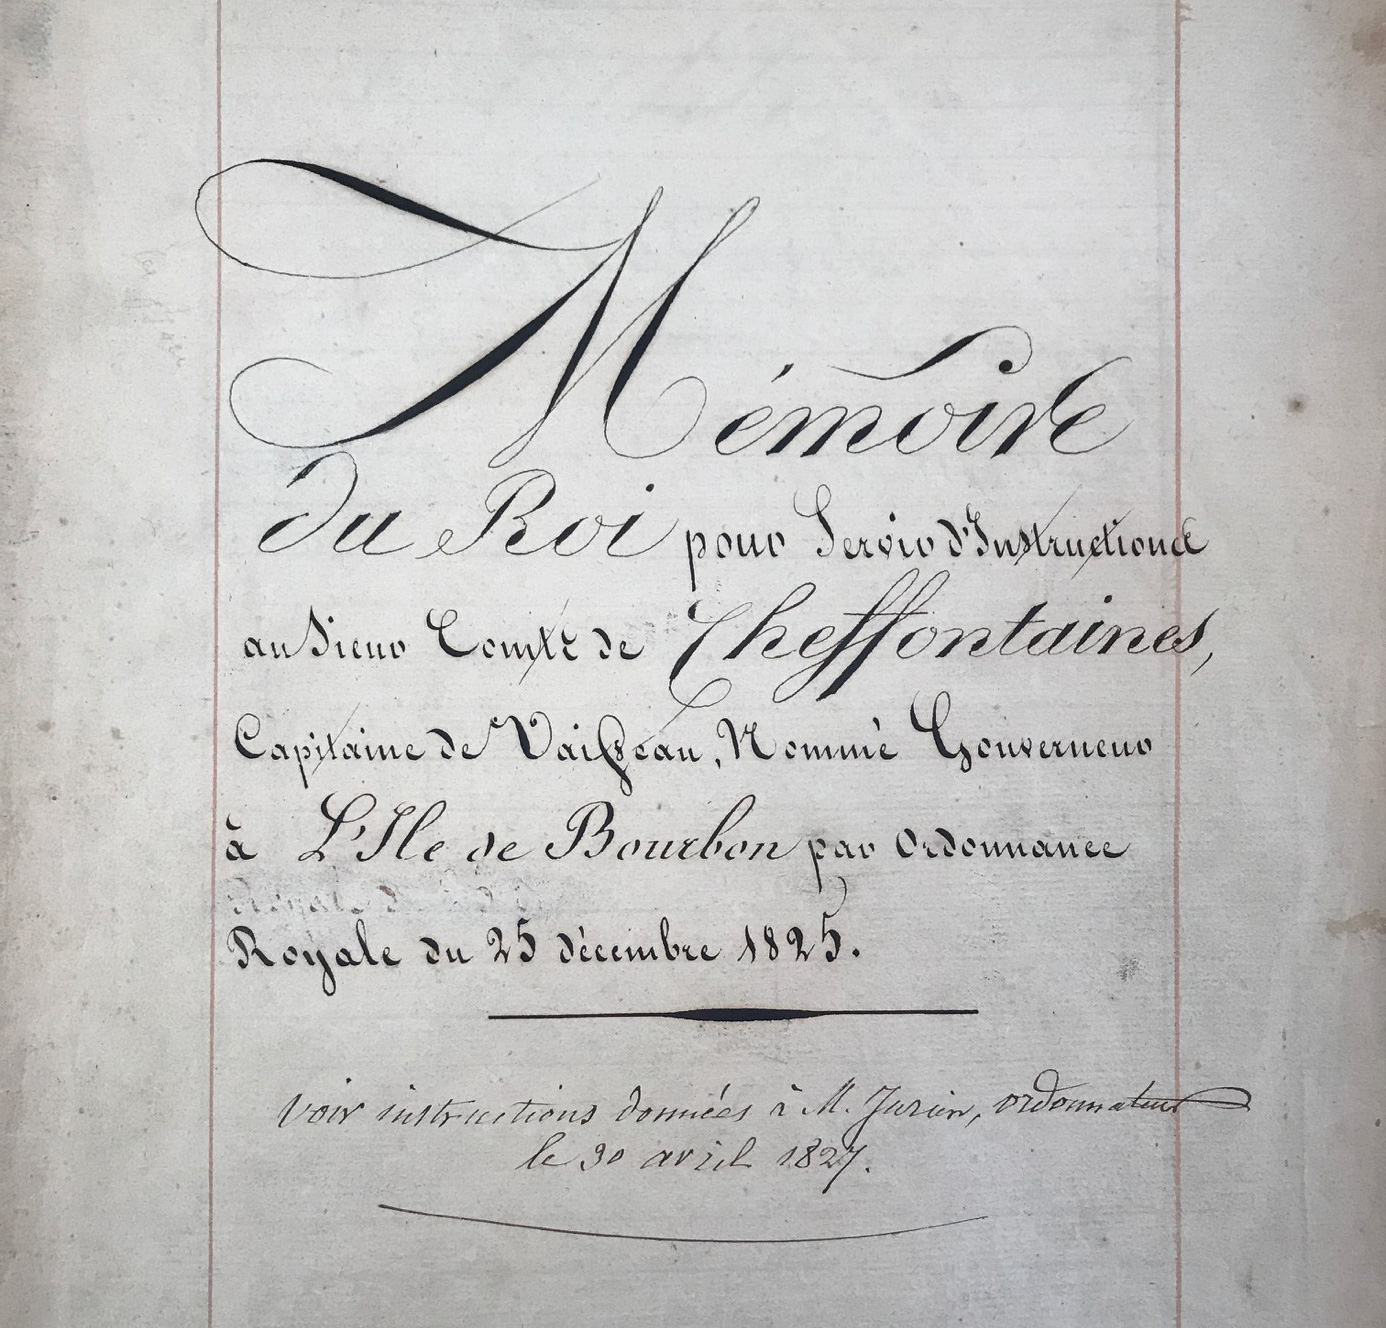 Mémoire
du Roi pour Servir d'Instructions
au Sieur Comte de Cheffontaines,
Capitaine de Vaisseau, Nommé Gouverneur
à L'Ile de Bourbon par Ordonnance
Royale du 25 décembre 1825.
Voir instructions données à M. Jurien, ordonnateur
le 30 avril 1827.